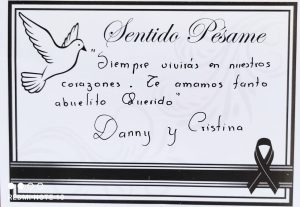 Sentido Pésame
"Siempre vivirás en nuestros
corazones. Te amamos tanto
abuelito Querido"
Danny y Cristina